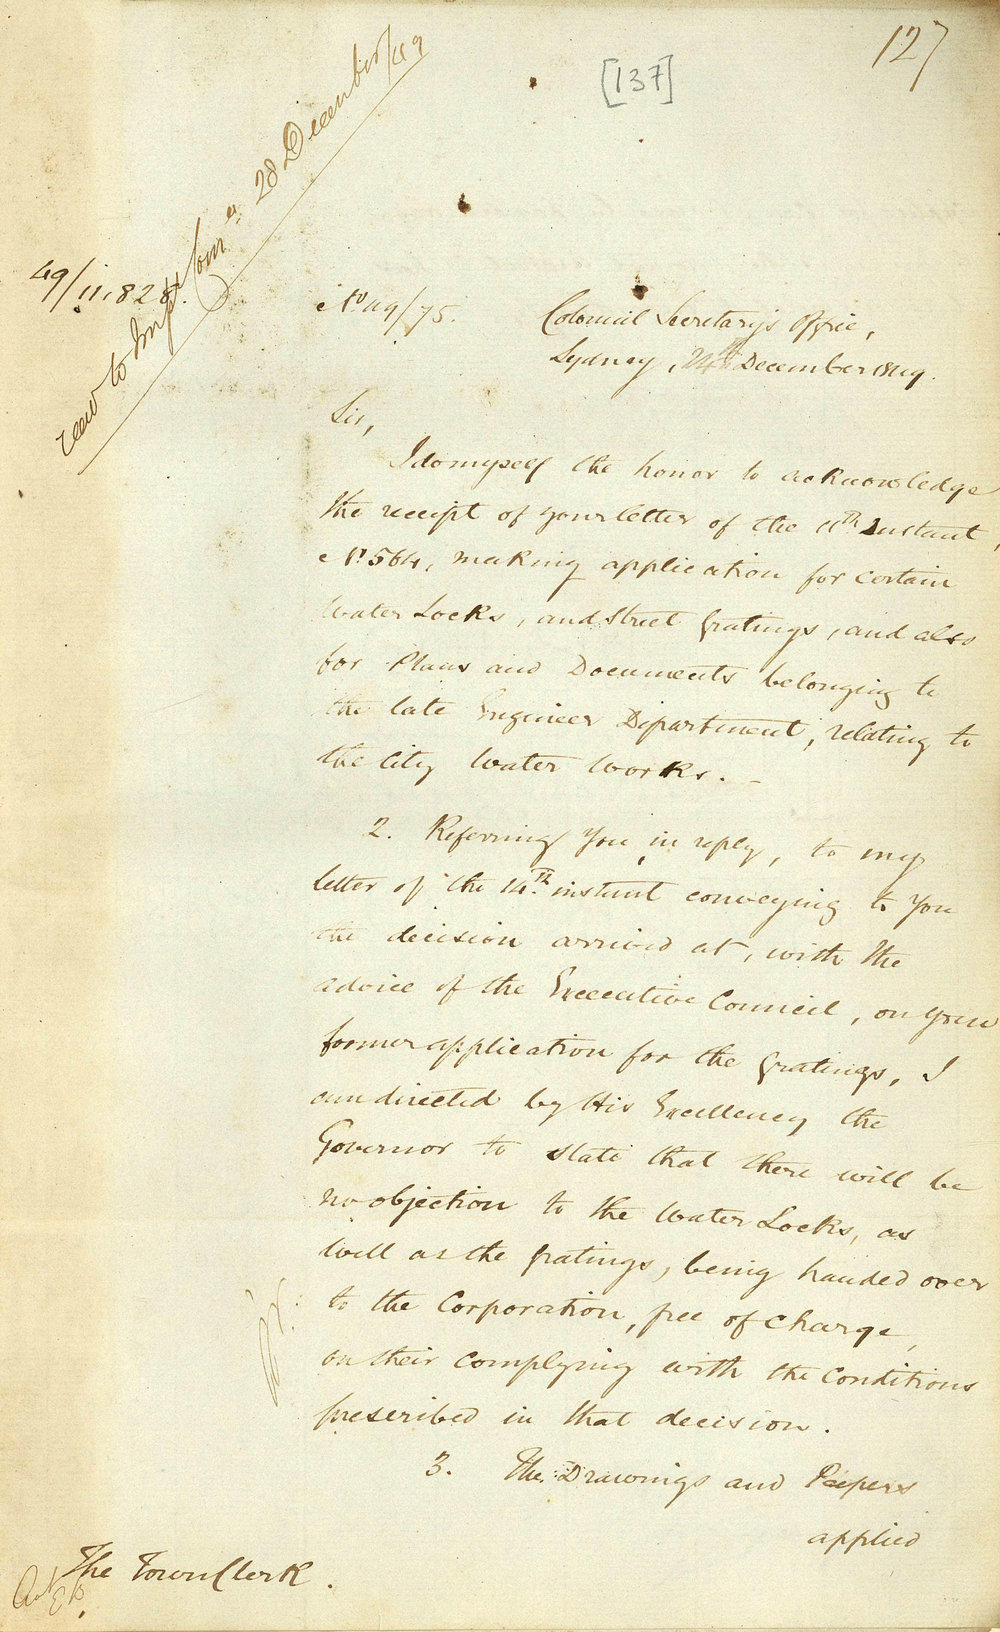 127
[137]
28 December/49
49/11,828.
No 49/75.
Colonial Secretary's Office,
Sydney, 24th December 1849.
Sir,
I do myself the honor to acknowledge
the receipt of your letter of the 11th Instant,
No. 564, making application for certain
Water Locks, and Street Gratings, and also
for Plans and Documents belonging to
the late Engineer Department, relating to
the City Water Works.
2. Referring You, in reply, to my
letter of the 14th instant conveying to You
the decision arrived at, with the
advice of the Executive Council, on your
former application for the Gratings, I
am directed by His Excellency the
Governor to state that there will be
no objection to the Water Locks, as
well as the Gratings, being handed over
to the Corporation, free of charge,
on their complying with the conditions
prescribed in that decision.
3. The Drawings and Papers
applied
The Town Clerk.